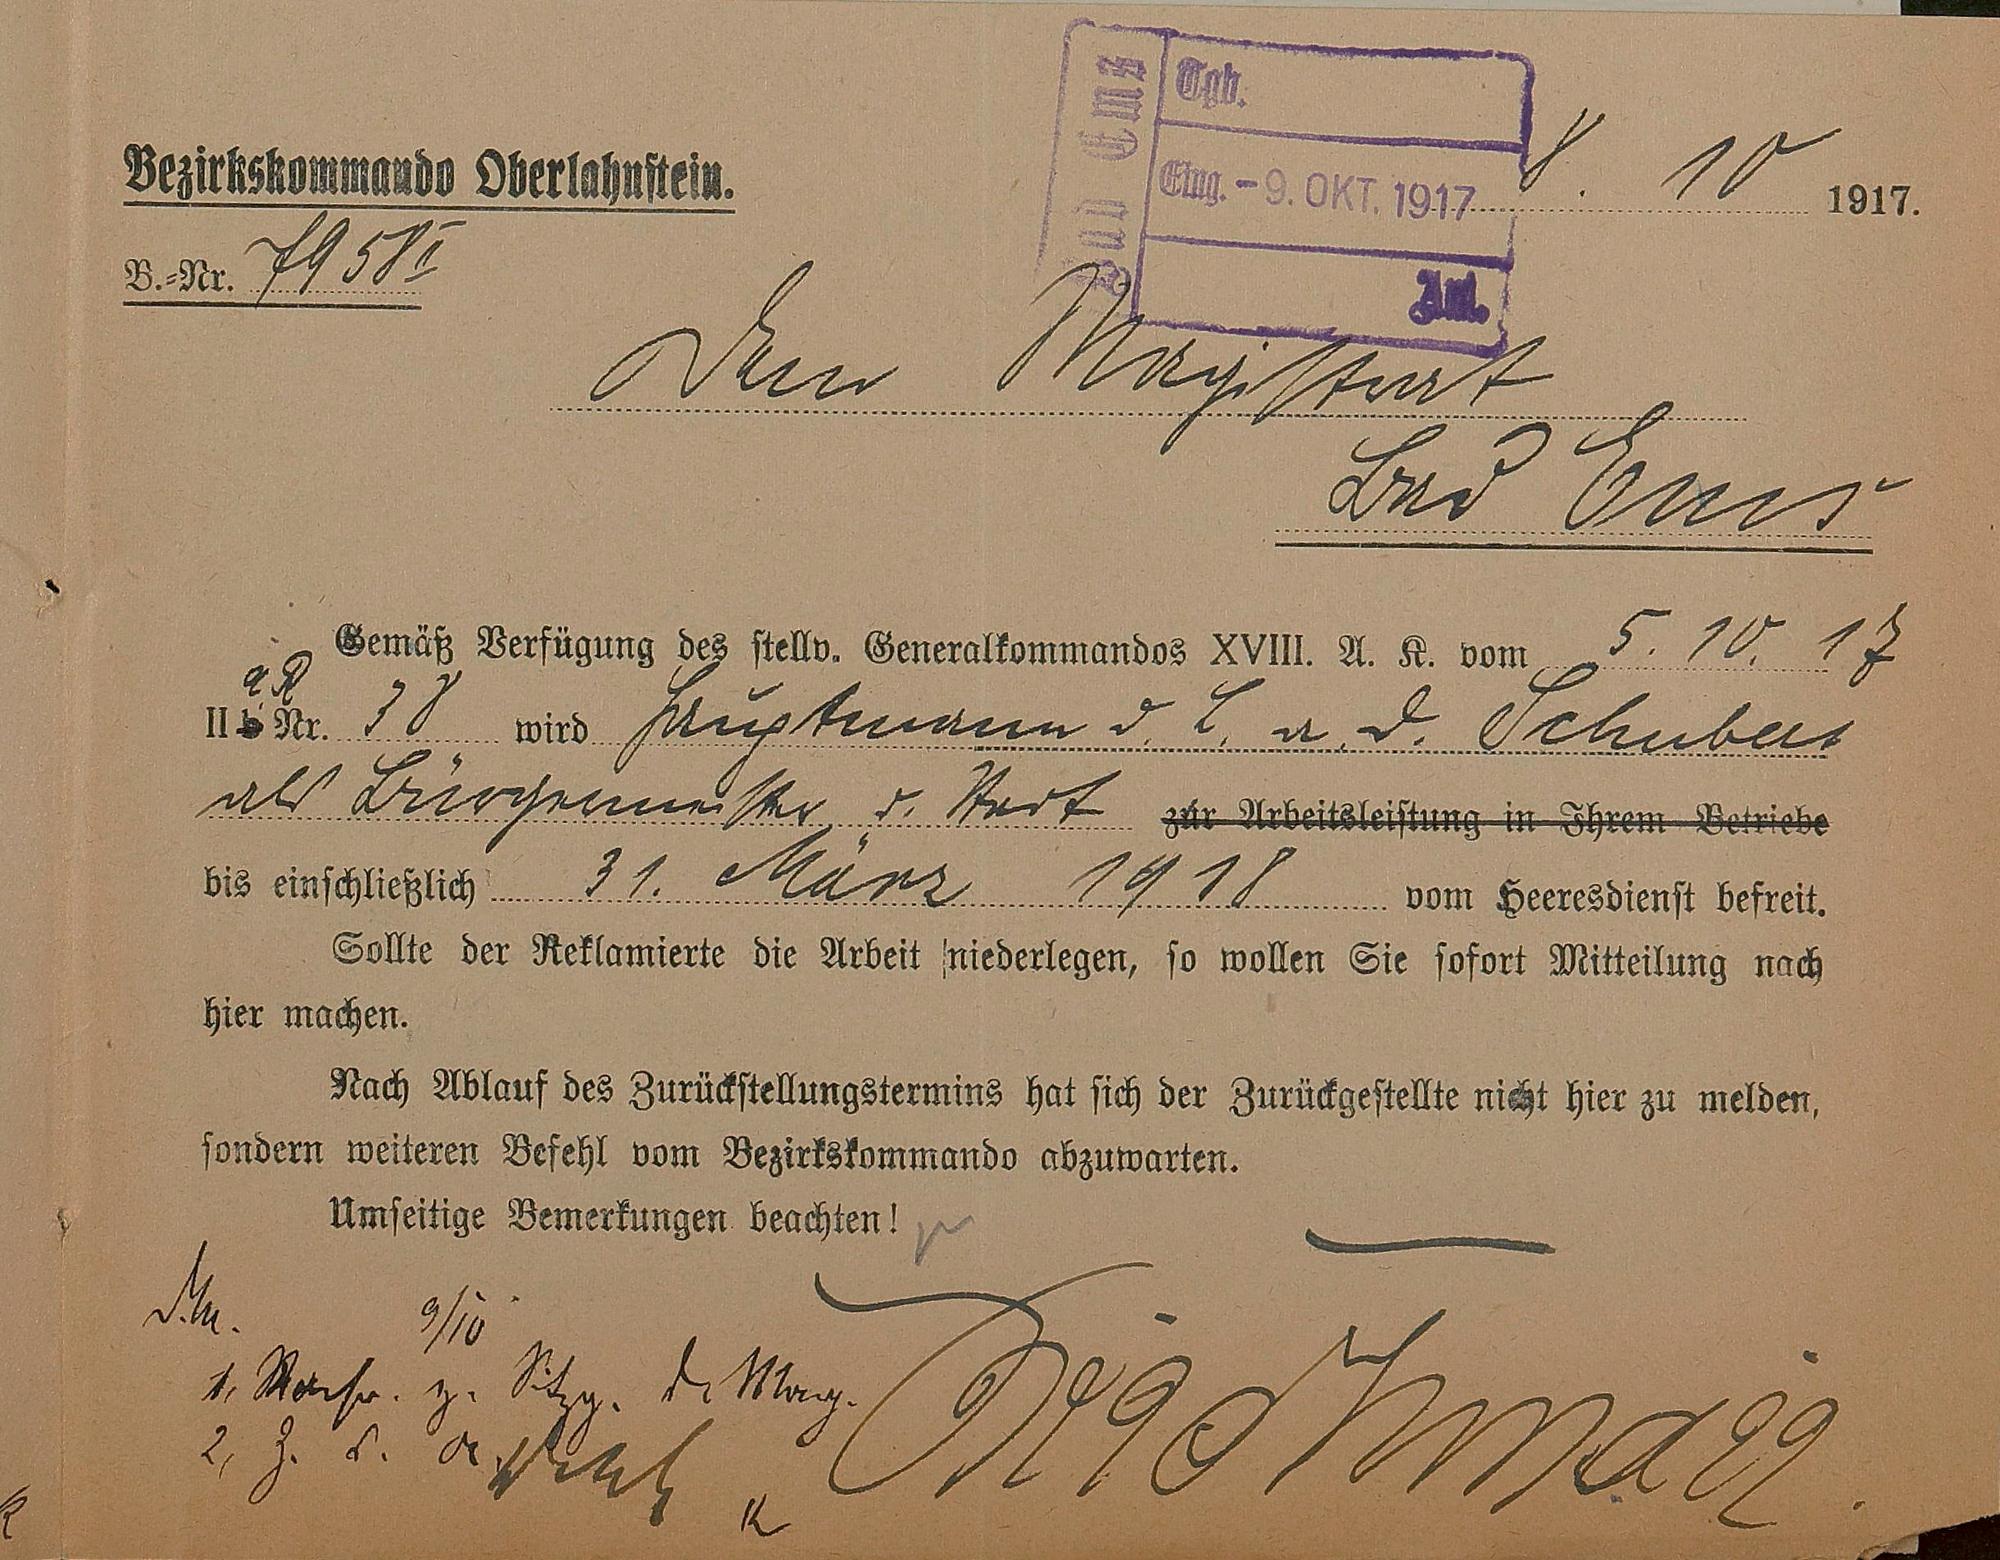 Bad Ems
Tgb.
Eing. - 9. OKT. 1917
Anl.
Bezirkskommando Oberlahnstein.
8. 10 1917.
B.-Nr. 7958 II
Dem Magistrat
Bad Ems
Gemäß Verfügung des stellv. Generalkommandos XVIII. A. K. vom 5. 10. 17
a R
II b Nr. 38 wird Hauptmann d. L. a. D. Schubert
als Bürgermeister d. Stadt zur Arbeitsleistung in Ihrem Betriebe
bis einschließlich 31. März 1918 vom Heeresdienst befreit.
Sollte der Reklamierte die Arbeit niederlegen, so wollen Sie sofort Mitteilung nach
hier machen.
Nach Ablauf des Zurückstellungstermins hat sich der Zurückgestellte nicht hier zu melden,
sondern weiteren Befehl vom Bezirkskommando abzuwarten.
Umseitige Bemerkungen beachten!
d. M. 9/10
1, z. Sitzg. d. Mag.
2, Z. d. A.
K